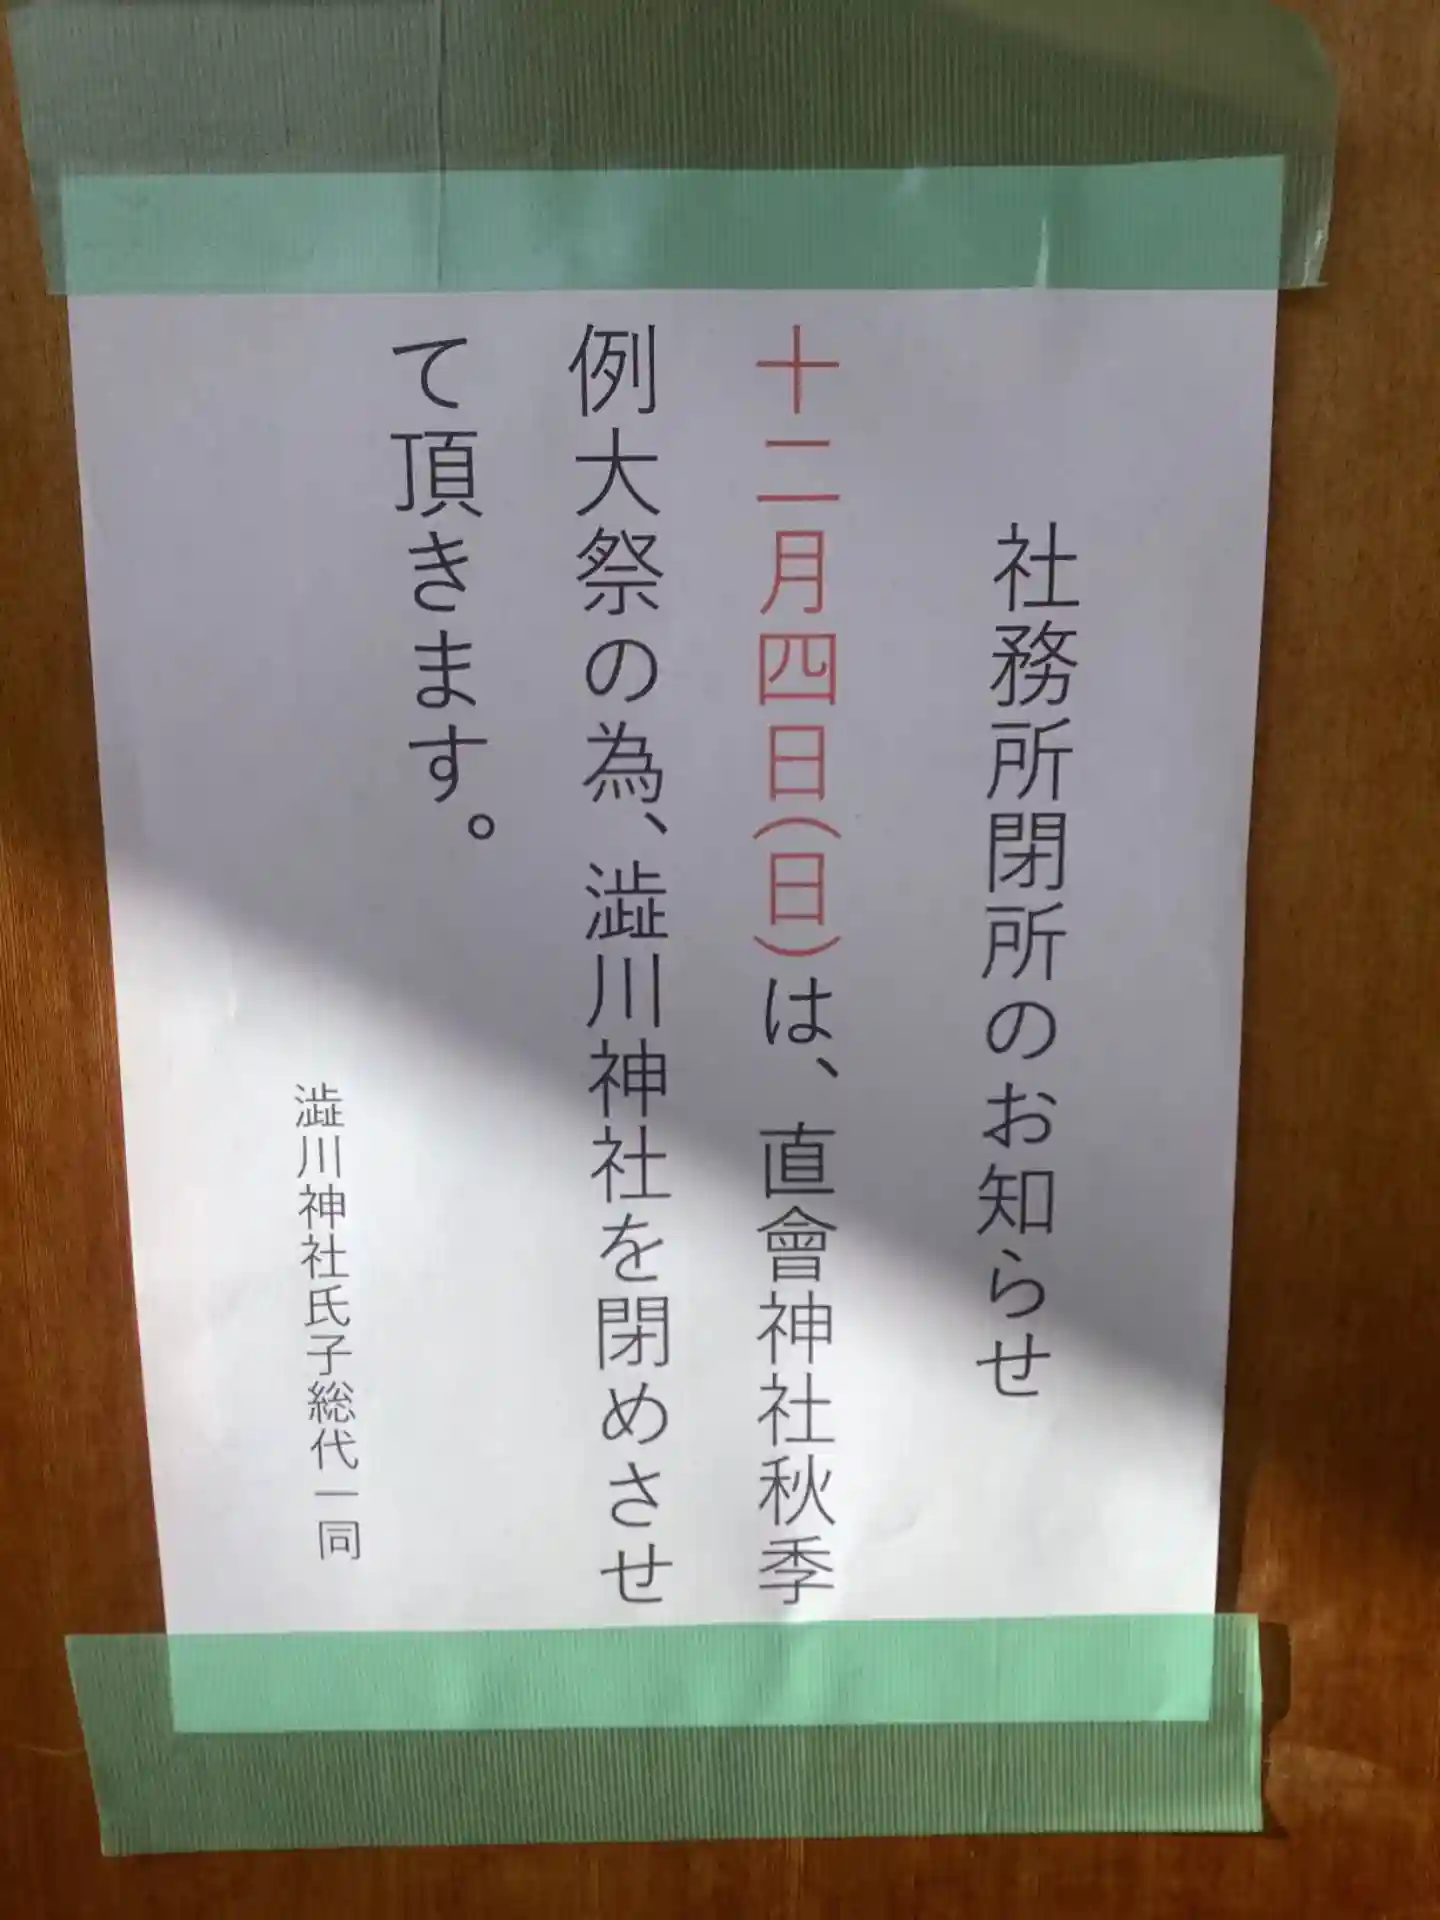 社務所閉所のお知らせ
十二月四日(日)は、直會神社秋季
例大祭の為、澁川神社を閉めさせ
て頂きます。
澁川神社氏子総代一同